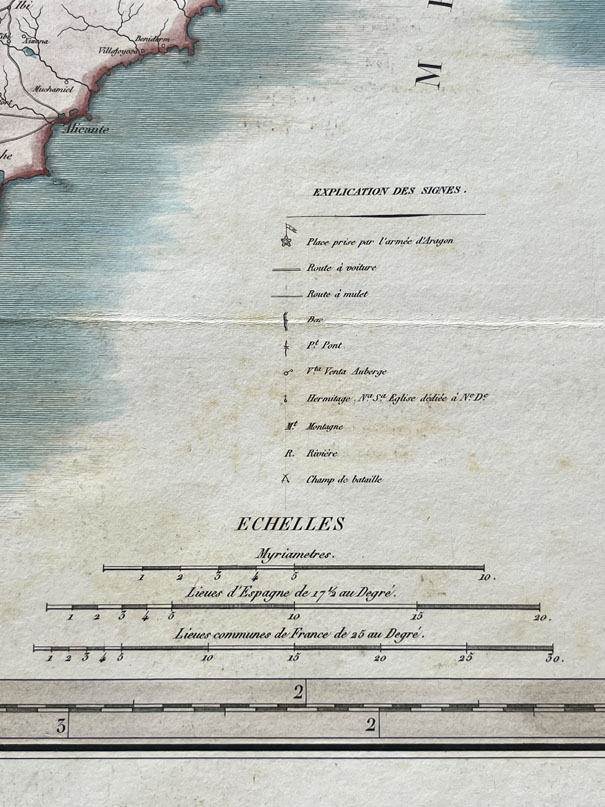 Ibi
M
Xixona
Benidorm
Villajoyosa
Muchamiel
Alicante
he
EXPLICATION DES SIGNES.
Place prise par l'armée d'Aragon
Route à voiture
Route à mulet
Bac
Pt. Pont
Vta Venta Auberge
Hermitage, Na. Sa. Eglise dédiée à Ne. De.
Mt. Montagne
R. Rivière
Champ de bataille
ECHELLES
Myriametres.
1 2 3 4 5 10.
Lieues d'Espagne de 17 1/2 au Degré.
1 2 3 4 5 10 15 20.
Lieues communes de France de 25 au Degré.
1 2 3 4 5 10 15 20 25 30.
2
3 2